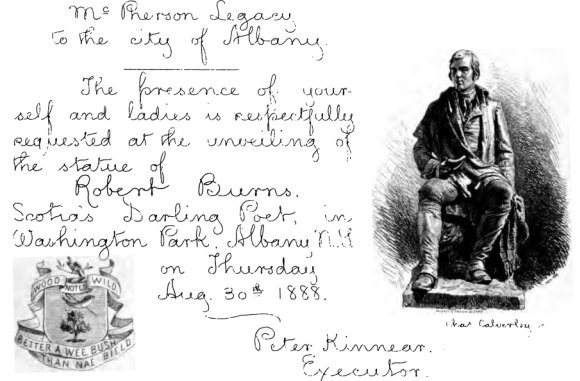 Mc Pherson Legacy
to the city of Albany.
The presence of your-
self and ladies is respectfully
requested at the unveiling of
the statue of
Robert Burns.
Scotia's Darling Poet, in
Washington Park, Albany N.Y.
on Thursday
Aug. 30th 1888.
WOOD NOTES WILD
BETTER A WEE BUSH
THAN NAE BIELD.
Chas Calverley
Peter Kinnear.
Executor.